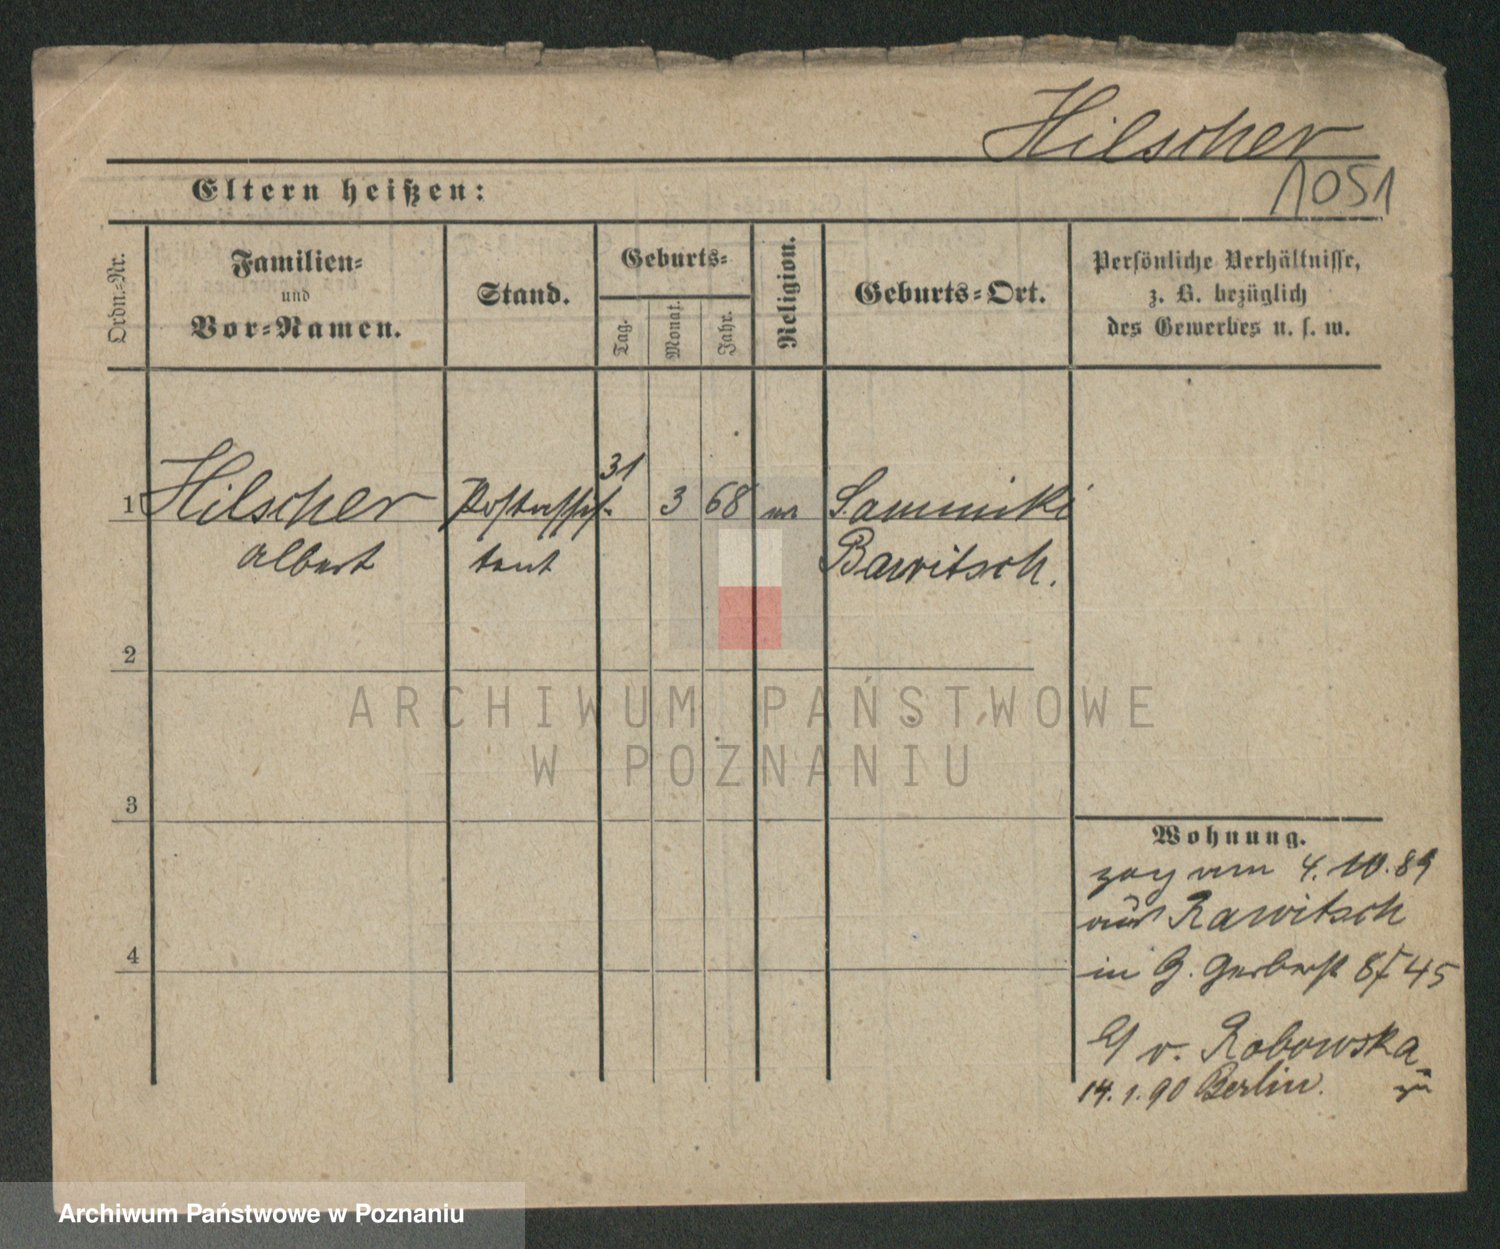 Hilscher
1051
Eltern heißen:
Ordn.-Nr.
Familien-
und
Vor-Namen.
Stand.
Geburts-
Tag.
Monat.
Jahr.
Religion.
Geburts-Ort.
Persönliche Verhältnisse,
z. B. bezüglich
des Gewerbes u. s. w.
1 Hilscher Postassis- 31 3 68
Albert tent
Bawitsch.
2
3
4
Wohnung.
zog am 4.10.89
aus Rawitsch
in G. Gerberst 8/45
v. Robowska
14.1.90 Berlin. zu
ARCHIWUM PAŃSTWOWE
W POZNANIU
Archiwum Państwowe w Poznaniu